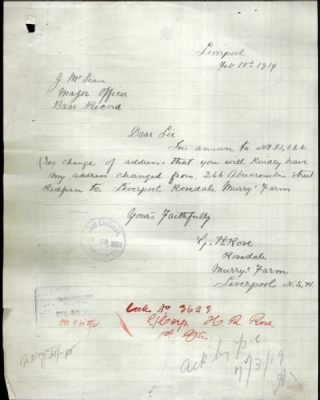 Liverpool
Feb 18th 1919
J. McLean
Major Officer
Base Record
Dear Sir
In answer to No 31,666
Re change of address that you will kindly have
my address changed from 266 Abercrombie street
Redfern to Liverpool Rosedale Murry's Farm
Yours Faithfully
H Rose
Rosedale
Murry's Farm
Liverpool N.S.W
No 3629
H R Rose
Ack by p.c
7/3/19